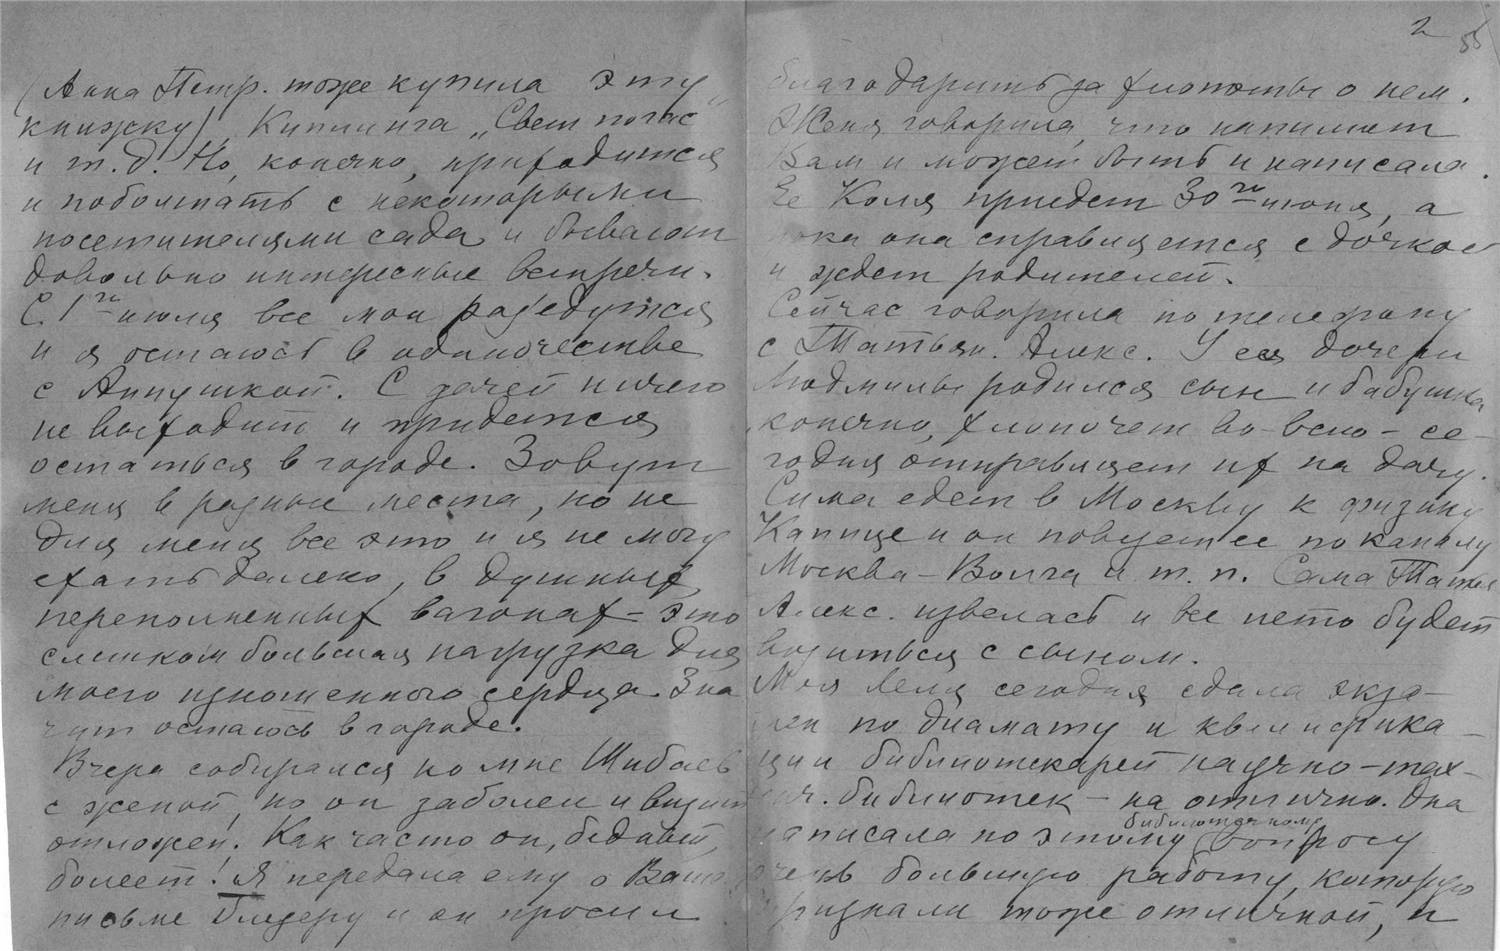 (Анна Петр. тоже купила эту
книжку) Киплинга „Свет погас"
и т.д. Но, конечно, приходится
и поболтать с некоторыми
посетителями сада и бывают
довольно интересные встречи.
С 1го июля все мои разъедутся
и я остаюсь в одиночестве
с Аннушкой. С дачей ничего
не выходит и придется
остаться в городе. Зовут
меня в разные места, но не
для меня все это и я не могу
ехать далеко, в душных,
переполненных вагонах – это
слишком большая нагрузка для
моего изношенного сердца. Зна
чит остаюсь в городе.
Вчера собирался ко мне Шибаев
с женой, но он заболел и визит
отложен. Как часто он, бедный,
болеет! Я передала ему о Вашем
письме и он просил
2 55
благодарить за хлопоты о нем.
Женя говорила, что напишет
Вам и может быть и написала.
Ее Коля приедет 30го июня, а
пока она справляется с дочкой
и ждет родителей.
Сейчас говорила по телефону
с Татьян. Алекс. У ея дочери
Людмилы родился сын и бабушка
конечно, хлопочет во-всю – се-
годня отправляет их на дачу.
Сима едет в Москву к физику
Капице и он повезет ее по каналу
Москва – Волга и т.п. Сама Татьян
Алекс. извелась и все лето будет
возиться с сыном.
Моя Леля сегодня сдала экза-
мен по диамату и квалифика-
ции библиотекарей научно-тех-
нич. библиотек – на отлично. Она
написала по этому библиотечному вопросу
очень большую работу, которую
признали тоже отличной, и